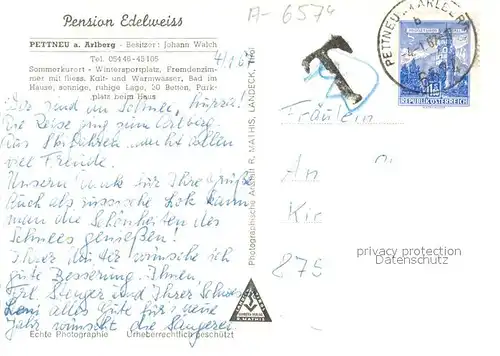 Pension Edelweiss
A-6574
PETTNEU a. Arlberg - Besitzer: Johann Walch
Tel. 05448-43105
Sommerkurort - Wintersportplatz, Fremdenzim-
mer mit fliess. Kalt- und Warmwasser, Bad im
Hause, sonnige, ruhige Lage, 30 Betten, Park-
platz beim Haus
PETTNEU a. ARLBERG
T
REPUBLIK ÖSTERREICH
Wir sind im Schnee, hurra!
Die Reise ging zum Arlberg.
Das Skifahren macht allen
viel Freude.
Unsern Dank für Ihre Grüße
Auch als russische kann
man die Schönheiten des
Schnees genießen!
Ihrer Mutter wünsche ich
gute Besserung. Ihnen
Frl. Stenger und Ihrer Schwes.
Leni alles Gute für's neue
Jahr wünscht die
Fräulein
An
Kir
875
privacy protection
Datenschutz
Photographische Anstalt R. MATHIS, LANDECK, Tirol
R. MATHIS
Echte Photographie Urheberrechtlich geschützt